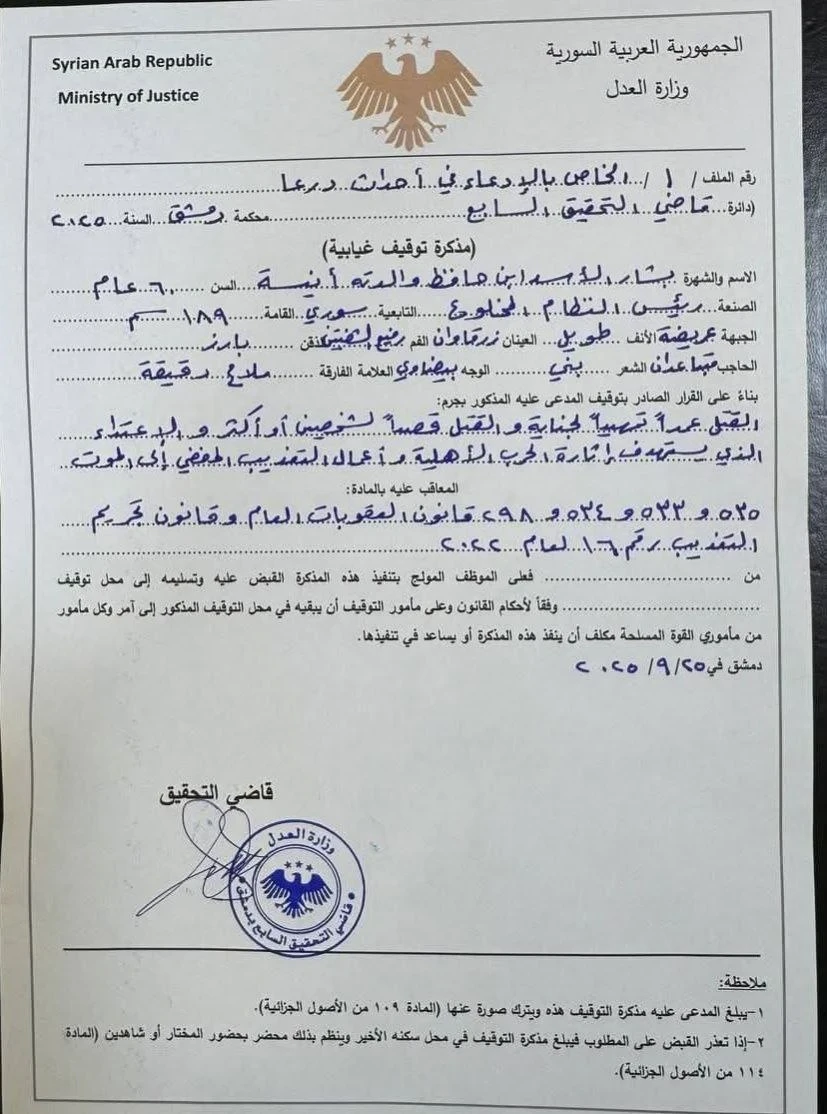 الجمهورية العربية السورية
وزارة العدل
Syrian Arab Republic
Ministry of Justice
رقم الملف / ١ / الخاص بالإدعاء في أحداث درعا
(دائرة... قاضي التحقيق السابع ... محكمة دمشق السنة ٢٠٢٥
(مذكرة توقيف غيابية)
الاسم والشهرة بشار الأسد ابن حافظ والدته أنيسة السن ٦٠ عام
الصنعة رئيس النظام المخلوع التابعية سوري القامة ١٨٩ سم
الجبهة عريضة الأنف طويل العينان زرقاوان الفم رفيع الشفتين ذقن بارز
الحاجب متباعدان الشعر بني الوجه بيضاوي العلامة الفارقة ملامح دقيقة
بناءً على القرار الصادر بتوقيف المدعى عليه المذكور بجرم:
القتل عمداً تمهيداً لجناية والقتل قصداً لشخصين أو أكثر والإعتداء
الذي يستهدف إثارة الحرب الأهلية وأعمال التعذيب المفضي إلى الموت
المعاقب عليه بالمادة:
٥٣٥ و ٥٣٣ و ٥٣٤ و ٢٩٨ قانون العقوبات العام وقانون تجريم
التعذيب رقم ١٦ لعام ٢٠٢٢
من ........ فعلى الموظف المولج بتنفيذ هذه المذكرة القبض عليه وتسليمه إلى محل توقيف
........ وفقاً لأحكام القانون وعلى مأمور التوقيف أن يبقيه في محل التوقيف المذكور إلى آمر وكل مأمور
من مأموري القوة المسلحة مكلف أن ينفذ هذه المذكرة أو يساعد في تنفيذها.
دمشق في ٢٠٢٥/٩/٢٥
قاضي التحقيق
وزارة العدل
قاضي التحقيق السابع بدمشق
ملاحظة:
١-يبلغ المدعى عليه مذكرة التوقيف هذه ويترك صورة عنها (المادة ١٠٩ من الأصول الجزائية).
٢-إذا تعذر القبض على المطلوب فيبلغ مذكرة التوقيف في محل سكنه الأخير وينظم بذلك محضر بحضور المختار أو شاهدين (المادة
١١٤ من الأصول الجزائية).